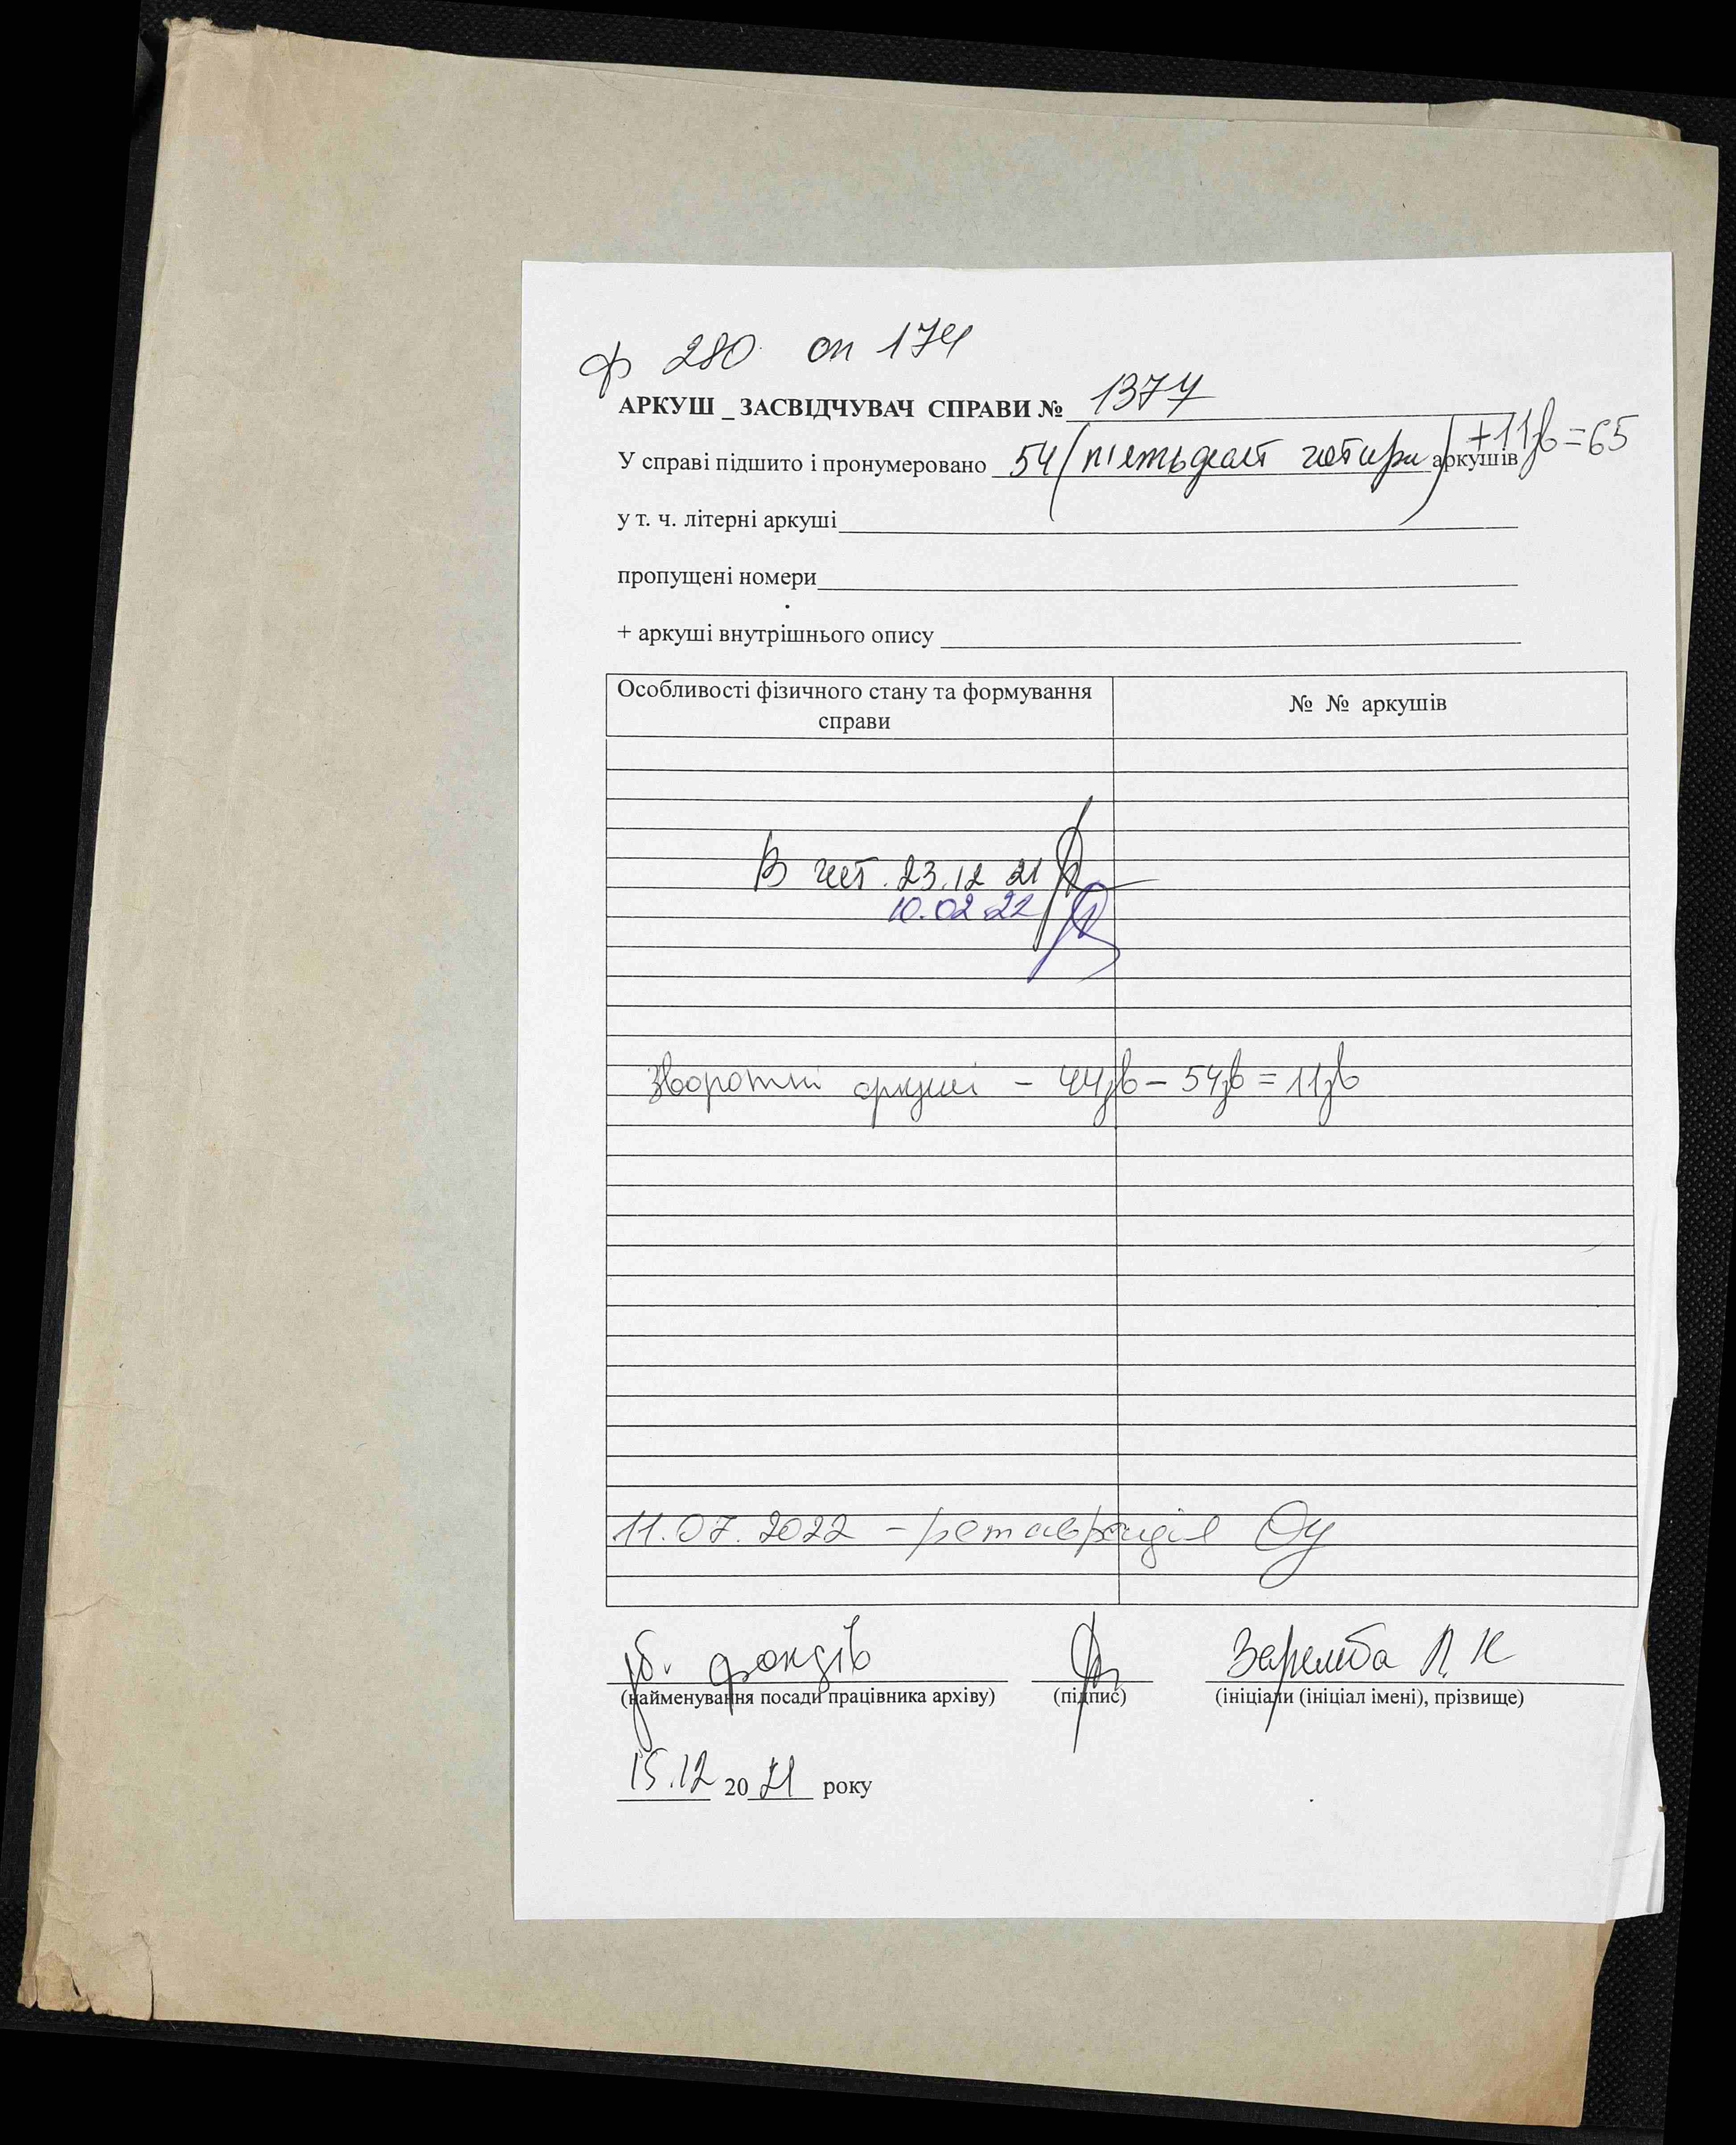 ф 280 оп 174
АРКУШ _ ЗАСВІДЧУВАЧ СПРАВИ № 1377
У справі підшито і пронумеровано 54 (п'ятьдесят чотири) аркушів +11зв=65
у т. ч. літерні аркуші
пропущені номери
+ аркуші внутрішнього опису
Особливості фізичного стану та формування справи
№ № аркушів
В чит. 23.12 21
10.02.22
Зворотні аркуші – 44зв – 54зв = 11зв
11.07.2022 – реставрація
фондів Заремба Л К
(найменування посади працівника архіву) (підпис) (ініціали (ініціал імені), прізвище)
15.12 2021 року